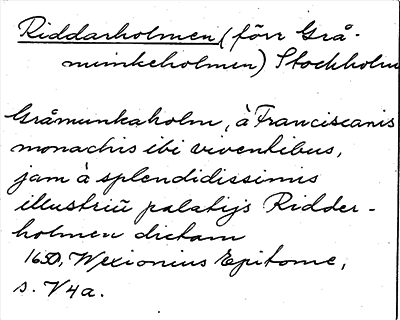 Riddarholmen (förr Grå-
munkeholmen) Stockholm
Gråmunkaholm, à Franciscanis
monachis ibi viventibus,
jam à splendidissimis
illustriū palatijs Ridder-
holmen dictam
1650, Wexionius Epitome,
s. V4a.